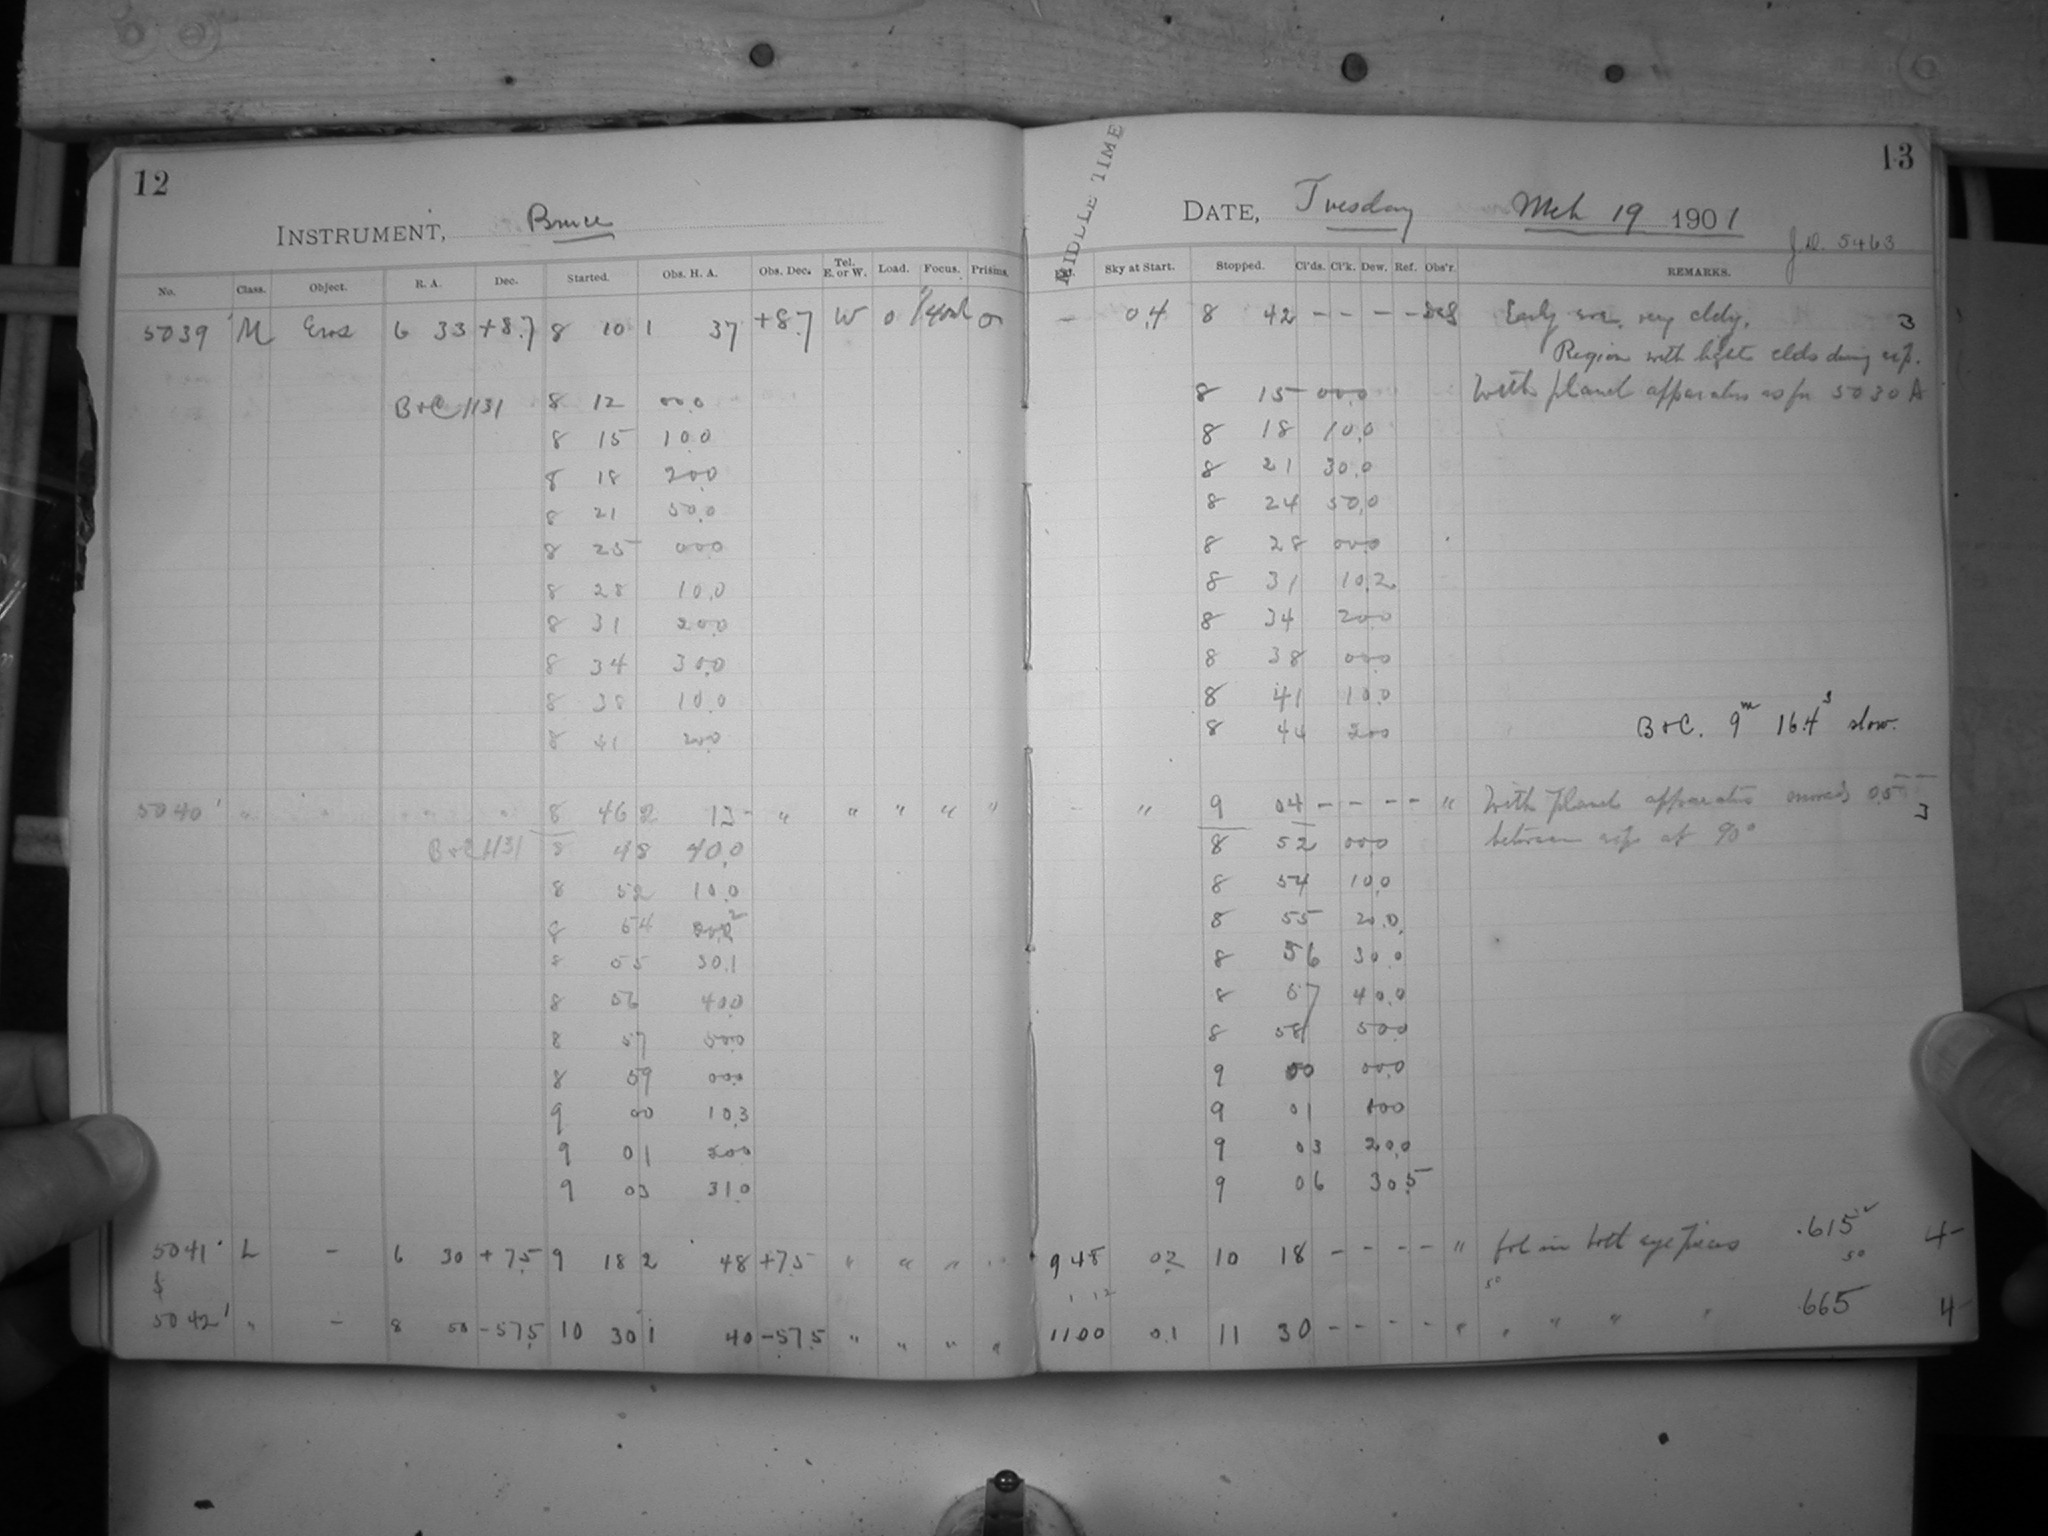 12
INSTRUMENT, Bruce
No. Class. Object. R. A. Dec. Started. Obs. H. A. Obs. Dec. Tel. E. or W. Load. Focus. Prisms.
5039 M Eros 6 33 +8.7 8 10 1 37 +8.7 W 0
B+C 1131 8 12 00.0
8 15 10.0
8 18 20.0
8 21 50.0
8 25 00.0
8 28 10.0
8 31 20.0
8 34 30.0
8 38 10.0
8 41 20.0
5040 " " " " " 8 46 2 13 - " " " " "
B+C 1131 8 48 40.0
8 52 10.0
8 54
8 55 30.1
8 56 40.0
8 57 50.0
8 59 00.0
9 00 10.3
9 01 20.0
9 03 31.0
5041 L - 6 30 +7.5 9 18 2 48 +7.5 " " " "
5042 " - 8 50 -57.5 10 30 1 40 -57.5 " " " "
13
MIDDLE TIME
DATE, Tuesday Mch 19 1901
J.D. 5463
Sky at Start. Stopped. Cl'ds. Cl'k. Dew. Ref. Obs'r. REMARKS.
- 0.4 8 42 - - - - Early eve. very cldy. 3
Region with light clds during exp.
8 15 00.0 With planet apparatus as for 5030 A
8 18 10.0
8 21 30.0
8 24 50.0
8 28 00.0
8 31 10.2
8 34 20.0
8 38 00.0
8 41 10.0
8 44 20.0 B+C. 9m 16.4s slow.
- " 9 04 - - - - " With planet apparatus moved 0.5 3
8 52 00.0 between exps at 90°
8 54 10.0
8 55 20.0
8 56 30.0
8 57 40.0
8 58 50.0
9 00 00.0
9 01 10.0
9 03 20.0
9 06 30.5
9 48 0.2 10 18 - - - - " fol in both eyepieces .615 4
50 50
1 12
11 00 0.1 11 30 - - - - " " " " " .665 4